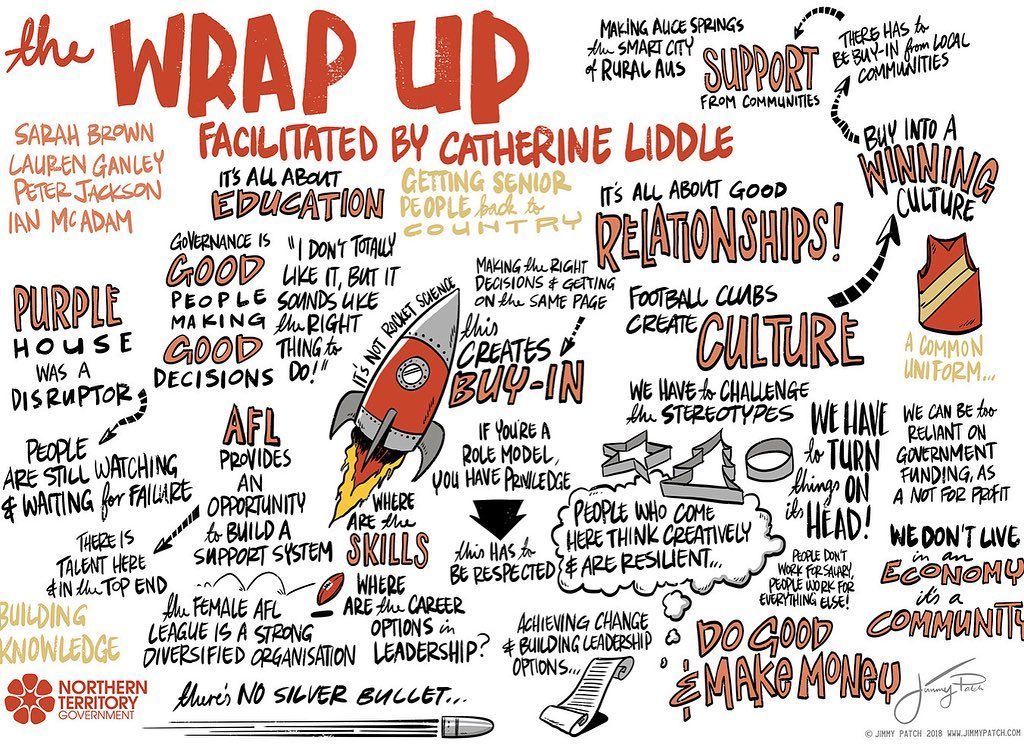 the WRAP UP
FACILITATED BY CATHERINE LIDDLE
SARAH BROWN
LAUREN GANLEY
PETER JACKSON
IAN McADAM
MAKING ALICE SPRINGS
the SMART CITY
of RURAL AUS
SUPPORT
FROM COMMUNITIES
THERE HAS to
BE BUY-IN from LOCAL
COMMUNITIES
BUY INTO A
WINNING
CULTURE
IT'S ALL ABOUT
EDUCATION
GETTING SENIOR
PEOPLE back to
COUNTRY
IT'S ALL ABOUT GOOD
RELATIONSHIPS!
PURPLE
HOUSE
WAS A
DISRUPTOR
GOVERNANCE IS
GOOD
PEOPLE
MAKING
GOOD
DECISIONS
"I DON'T TOTALLY
LIKE IT, BUT IT
SOUNDS LIKE
the RIGHT
THING to
DO!"
IT'S NOT ROCKET SCIENCE
MAKING the RIGHT
DECISIONS & GETTING
ON the SAME PAGE
this
CREATES
BUY-IN
FOOTBALL CLUBS
CREATE CULTURE
A COMMON
UNIFORM...
PEOPLE
ARE STILL WATCHING
& WAITING for FAILURE
AFL
PROVIDES
AN
OPPORTUNITY
to BUILD A
SUPPORT SYSTEM
THERE IS
TALENT HERE
& in the TOP END
IF YOU'RE A
ROLE MODEL,
YOU HAVE PRIVILEDGE
this HAS to
BE RESPECTED
WE HAVE to CHALLENGE
the STEREOTYPES
PEOPLE WHO COME
HERE THINK CREATIVELY
& ARE RESILIENT...
WE HAVE
to TURN
things ON
its HEAD!
WE CAN BE too
RELIANT ON
GOVERNMENT
FUNDING, AS
A NOT FOR PROFIT
PEOPLE DON'T
WORK FOR SALARY,
PEOPLE WORK FOR
EVERYTHING ELSE!
WE DON'T LIVE
in an
ECONOMY
it's a
COMMUNITY
WHERE
ARE the
SKILLS
WHERE
ARE the CAREER
OPTIONS in
LEADERSHIP?
BUILDING
KNOWLEDGE
the FEMALE AFL
LEAGUE IS A STRONG
DIVERSIFIED ORGANISATION
ACHIEVING CHANGE
& BUILDING LEADERSHIP
OPTIONS...
DO GOOD
& MAKE MONEY
NORTHERN
TERRITORY
GOVERNMENT
there's NO SILVER BULLET...
Jimmy Patch
© JIMMY PATCH 2018 WWW.JIMMYPATCH.COM